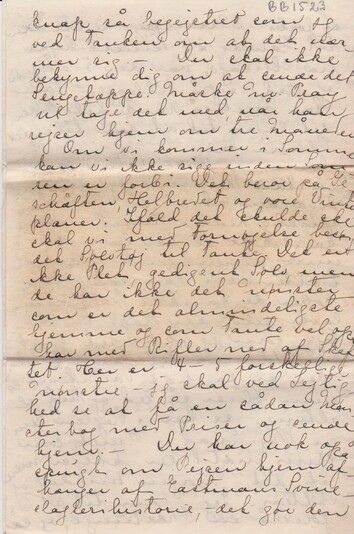 BB1523
knap så begejstret som jeg
ved Tanken om at det nær
mer sig – Du skal ikke
bekymre dig om at sende det
Sengetæppe. Måske Mr Pray
vil tage det med, når han
rejser hjem om tre Måneder
Om vi kommer i Sommer
kan vi ikke sige inden Som
ren er forbi. Det beror på Ge
schäften, Helbredet og vore Vinter
planer. Ifald det skulde ske
skal vi med Fornøjelse besørge
det Sølvtøj til Tante. Det er
ikke Plet, gedigent Sølv, men
de har ikke det Mønster
som er det almindeligste
hjemme og som Tante vel også
har med Rifler ned af Skaf
tet. Her er 4–5 forskellige
Mønstre – jeg skal ved Lejlig
hed se at få en sådan Møn
sterbog med Priser og sende
hjem. – Du har nok også
spurgt om Rejsen hjem af
hænger af Eastmans Svine
slagterihistorie, – det gør den